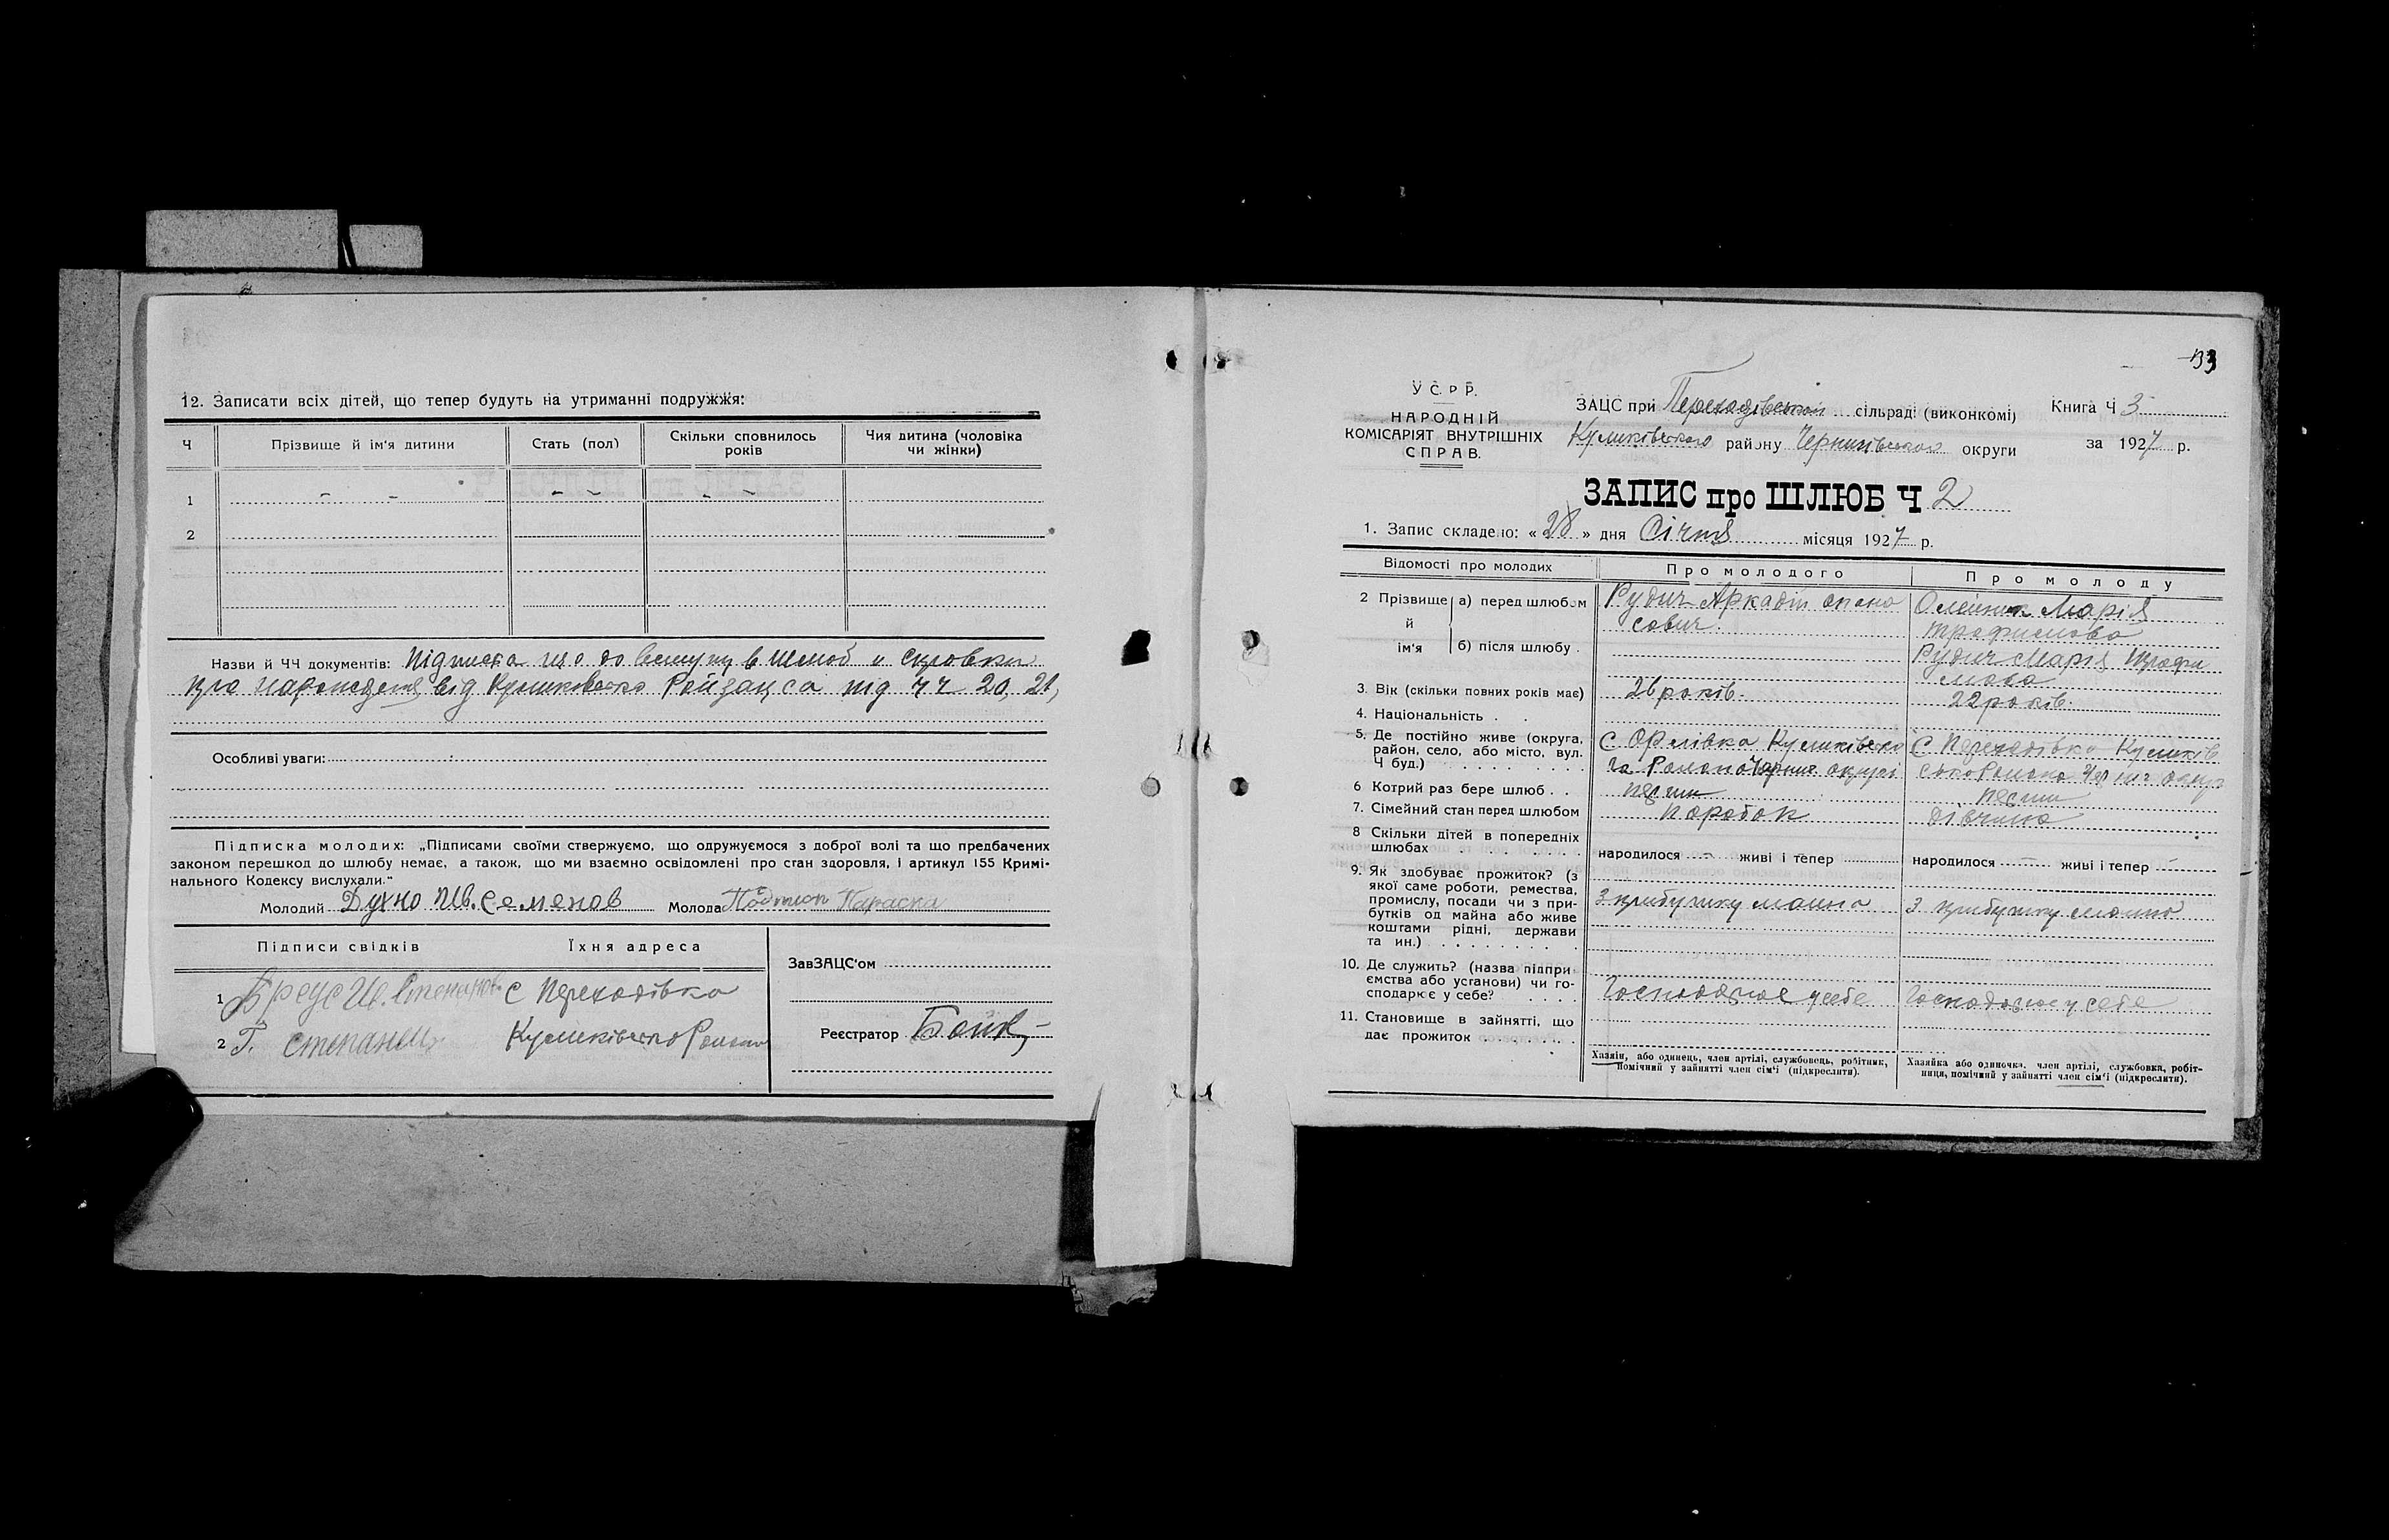 12. Записати всіх дітей, що тепер будуть на утриманні подружжя:
Ч Прізвище й ім'я дитини Стать (пол) Скільки сповнилось років Чия дитина (чоловіка чи жінки)
1 - - - - - -
2
Назви й ЧЧ документів: Підписка що до вступу в шлюб и справки
про народження від Куликівсько Райзацса під ЧЧ 20, 21,
Особливі уваги:
Підписка молодих: „Підписами своїми ствержуємо, що одружуємося з доброї волі та що предбачених
законом перешкод до шлюбу немає, а також, що ми взаємно освідомлені про стан здоровля, і артикул 155 Кримі-
нального Кодексу вислухали."
Молодий Духно Ив. Семенов Молода Параска
Підписи свідків Їхня адреса
1 Бреус Ив. Степанов с Переходівка
2 Г. Степанец Куликівсько Району
ЗавЗАЦС'ом
Реєстратор Бойко
133
У С Р Р.
НАРОДНІЙ
КОМІСАРІЯТ ВНУТРІШНІХ
СПРАВ.
ЗАЦС при Переходівській сільраді (виконкомі) Книга Ч 3
Куликівського району Чернигівськой округи за 1927 р.
ЗАПИС про ШЛЮБ Ч 2
1. Запис складено: « 28 » дня Січня місяця 1927 р.
Відомості про молодих Про молодого Про молоду
2 Прізвище й ім'я
а) перед шлюбом Рудич Аркадій Опана Олейник Марія
сович. Трофимова
б) після шлюбу . Рудич Марія Трофи
мова
3. Вік (скільки повних років має) 26 років. 22 років.
4. Національність . .
5. Де постійно живе (округа, район, село, або місто, вул. Ч буд.)
С Орлівка Куликівсько С Переходівка Куликів
го Району Черниг округи сько Району Черниг округ
6 Котрий раз бере шлюб . . перший перший
7. Сімейний стан перед шлюбом Паробок дівчина
8 Скільки дітей в попередніх
шлюбах народилося - живі і тепер народилося - живі і тепер -
9. Як здобуває прожиток? (з
якої саме роботи, ремества,
промислу, посади чи з при-
бутків од майна або живе
коштами рідні, держави
та ин.)
З прибутку майна З прибутку майна
10. Де служить? (назва підпри-
ємства або установи) чи го-
сподарює у себе?
Господарює у себе Господарює у себе
11. Становище в зайнятті, що
дає прожиток
Хазяїн, або одинець, член артілі, службовець, робітник,
помічний у зайнятті член сім'ї (підкреслити).
Хазяйка або одиночка, член артілі, службовка, робіт-
ниця, помічний у зайнятті член сім'ї (підкреслити).